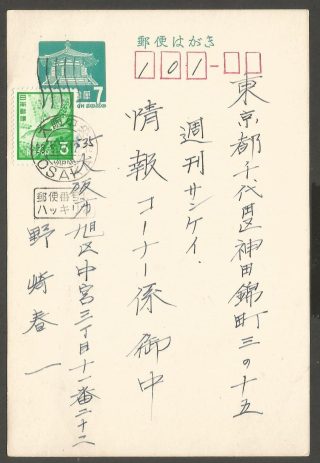 郵便はがき
101-
東京都千代田区神田錦町三の十五
週刊サンケイ
情報コーナー係御中
7
日本郵便
3
OSAKA
535
郵便番
ハッキリ
大阪市旭区中宮三丁目十一番二十二
野崎春一